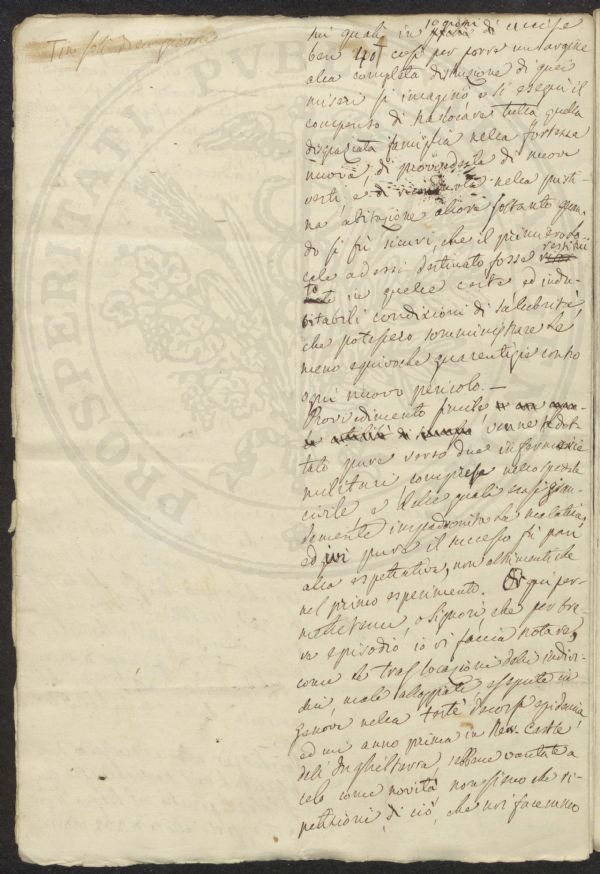 Tre soli
sui quali in 10 giorni di uccise
ben 40 così per porre un argine
alla completa distruzione di quei
miseri si imaginò e si eseguì il
compenso di traslocare tutta quella
disgraziata famiglia nella fortezza
nuova, di provvederla di nuove
vesti, e nella pristi-
na abitazione allora soltanto quan-
do si fù sicuri, che il primiero lo-
cale ad essi destinato fosse restitui
to in quelle certe ed indu-
bitabili condizioni di salubrità,
che potessero somministrare le
meno equivoche guarentigie contro
ogni nuovo pericolo. —
Provvedimento simile
venne adot
tato pure verso due infermerie
militari comprese nello spedale
civile, e delle quali erasi gran-
demente impadronita la malattia,
ed ivi pure il successo fù pari
alla espettativa, non altrimenti che
nel primo esperimento. Or qui per-
mettetemi, o Signori, che per bre-
ve episodio io vi faccia notare,
come le traslocazioni deli indivi-
dui, male alloggiati eseguite in
Genova nella scorsa epidemia
ed un anno prima in New-Castle
dell'Inghilterra, sebbene vantate a
cielo come novità non furono che ri-
petizioni di ciò, che noi facemmo